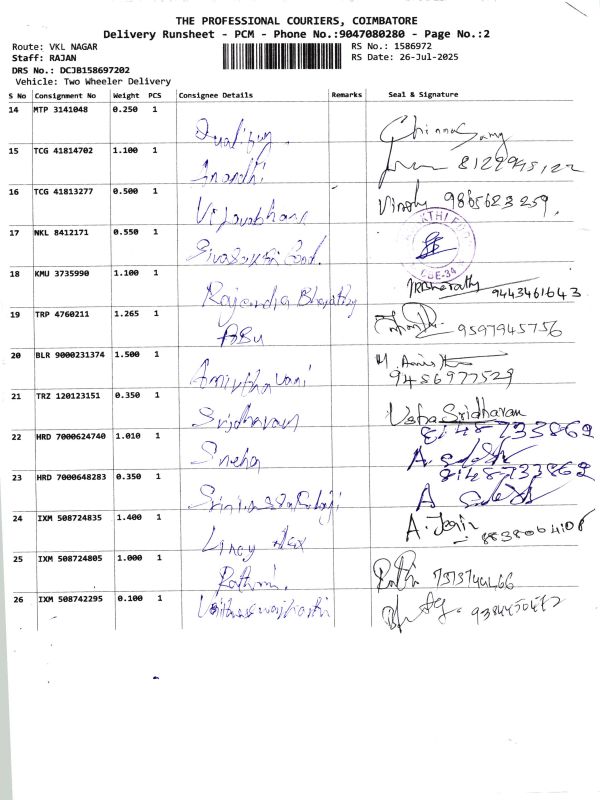 THE PROFESSIONAL COURIERS, COIMBATORE
Delivery Runsheet - PCM - Phone No.:9047080280 - Page No.:2
Route: VKL NAGAR RS No.: 1586972
Staff: RAJAN RS Date: 26-Jul-2025
DRS No.: DCJB158697202
Vehicle: Two Wheeler Delivery
S No Consignment No Weight PCS Consignee Details Remarks Seal & Signature
14 MTP 3141048 0.250 1
Chinnasamy
15 TCG 41814702 1.100 1
Anandhi
16 TCG 41813277 0.500 1 9865623259
17 NKL 8412171 0.550 1
18 KMU 3735990 1.100 1
Rajendra 9443461643
19 TRP 4760211 1.265 1
ABU 9597945756
20 BLR 9000231374 1.500 1
Amirthavani 9456977529
21 TRZ 120123151 0.350 1
Sridharan Usha Sridharan
22 HRD 7000624740 1.010 1 8148733869
Sneha
23 HRD 7000648283 0.350 1 8148733869
24 IXM 508724835 1.400 1
Lincy Alex
25 IXM 508724805 1.000 1
26 IXM 508742295 0.100 1